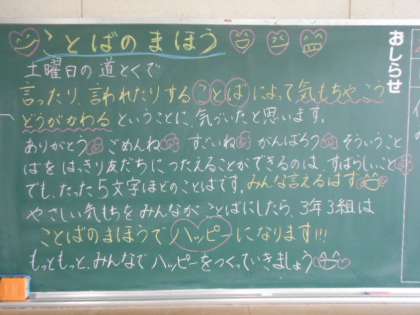 ことばのまほう
おしらせ
土曜日の道とくで
言ったり、言われたりすることばによって気もちやこう
どうがかわるということに、気づいたと思います。
ありがとう ごめんね すごいね がんばろう そういうこと
ばをはっきり友だちにつたえることができるのは、すばらしいこと
でも、たった5文字ほどのことばです。みんな言えるはず
やさしい気もちをみんながことばにしたら、3年3組は
ことばのまほうでハッピーになります!!!
もっともっと、みんなでハッピーをつくっていきましょう